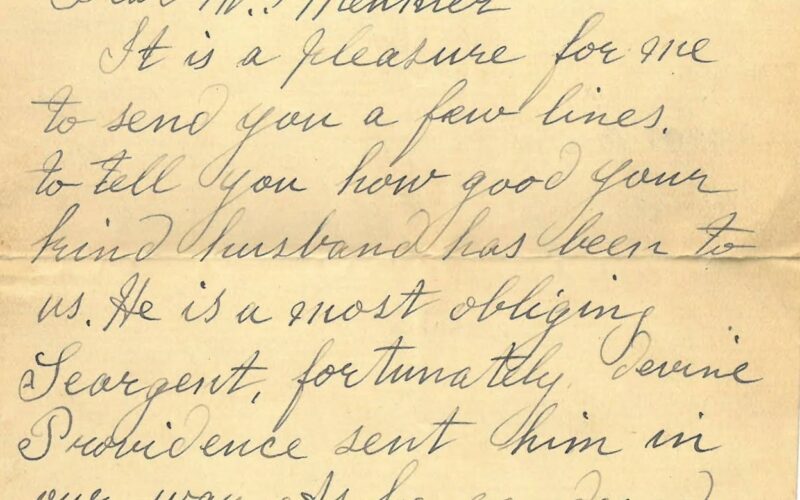 Dear
It is a pleasure for me
to send you a few lines.
to tell you how good your
kind husband has been to
us. He is a most obliging
Seargent, fortunately devine
Providence sent him in
our way. As he